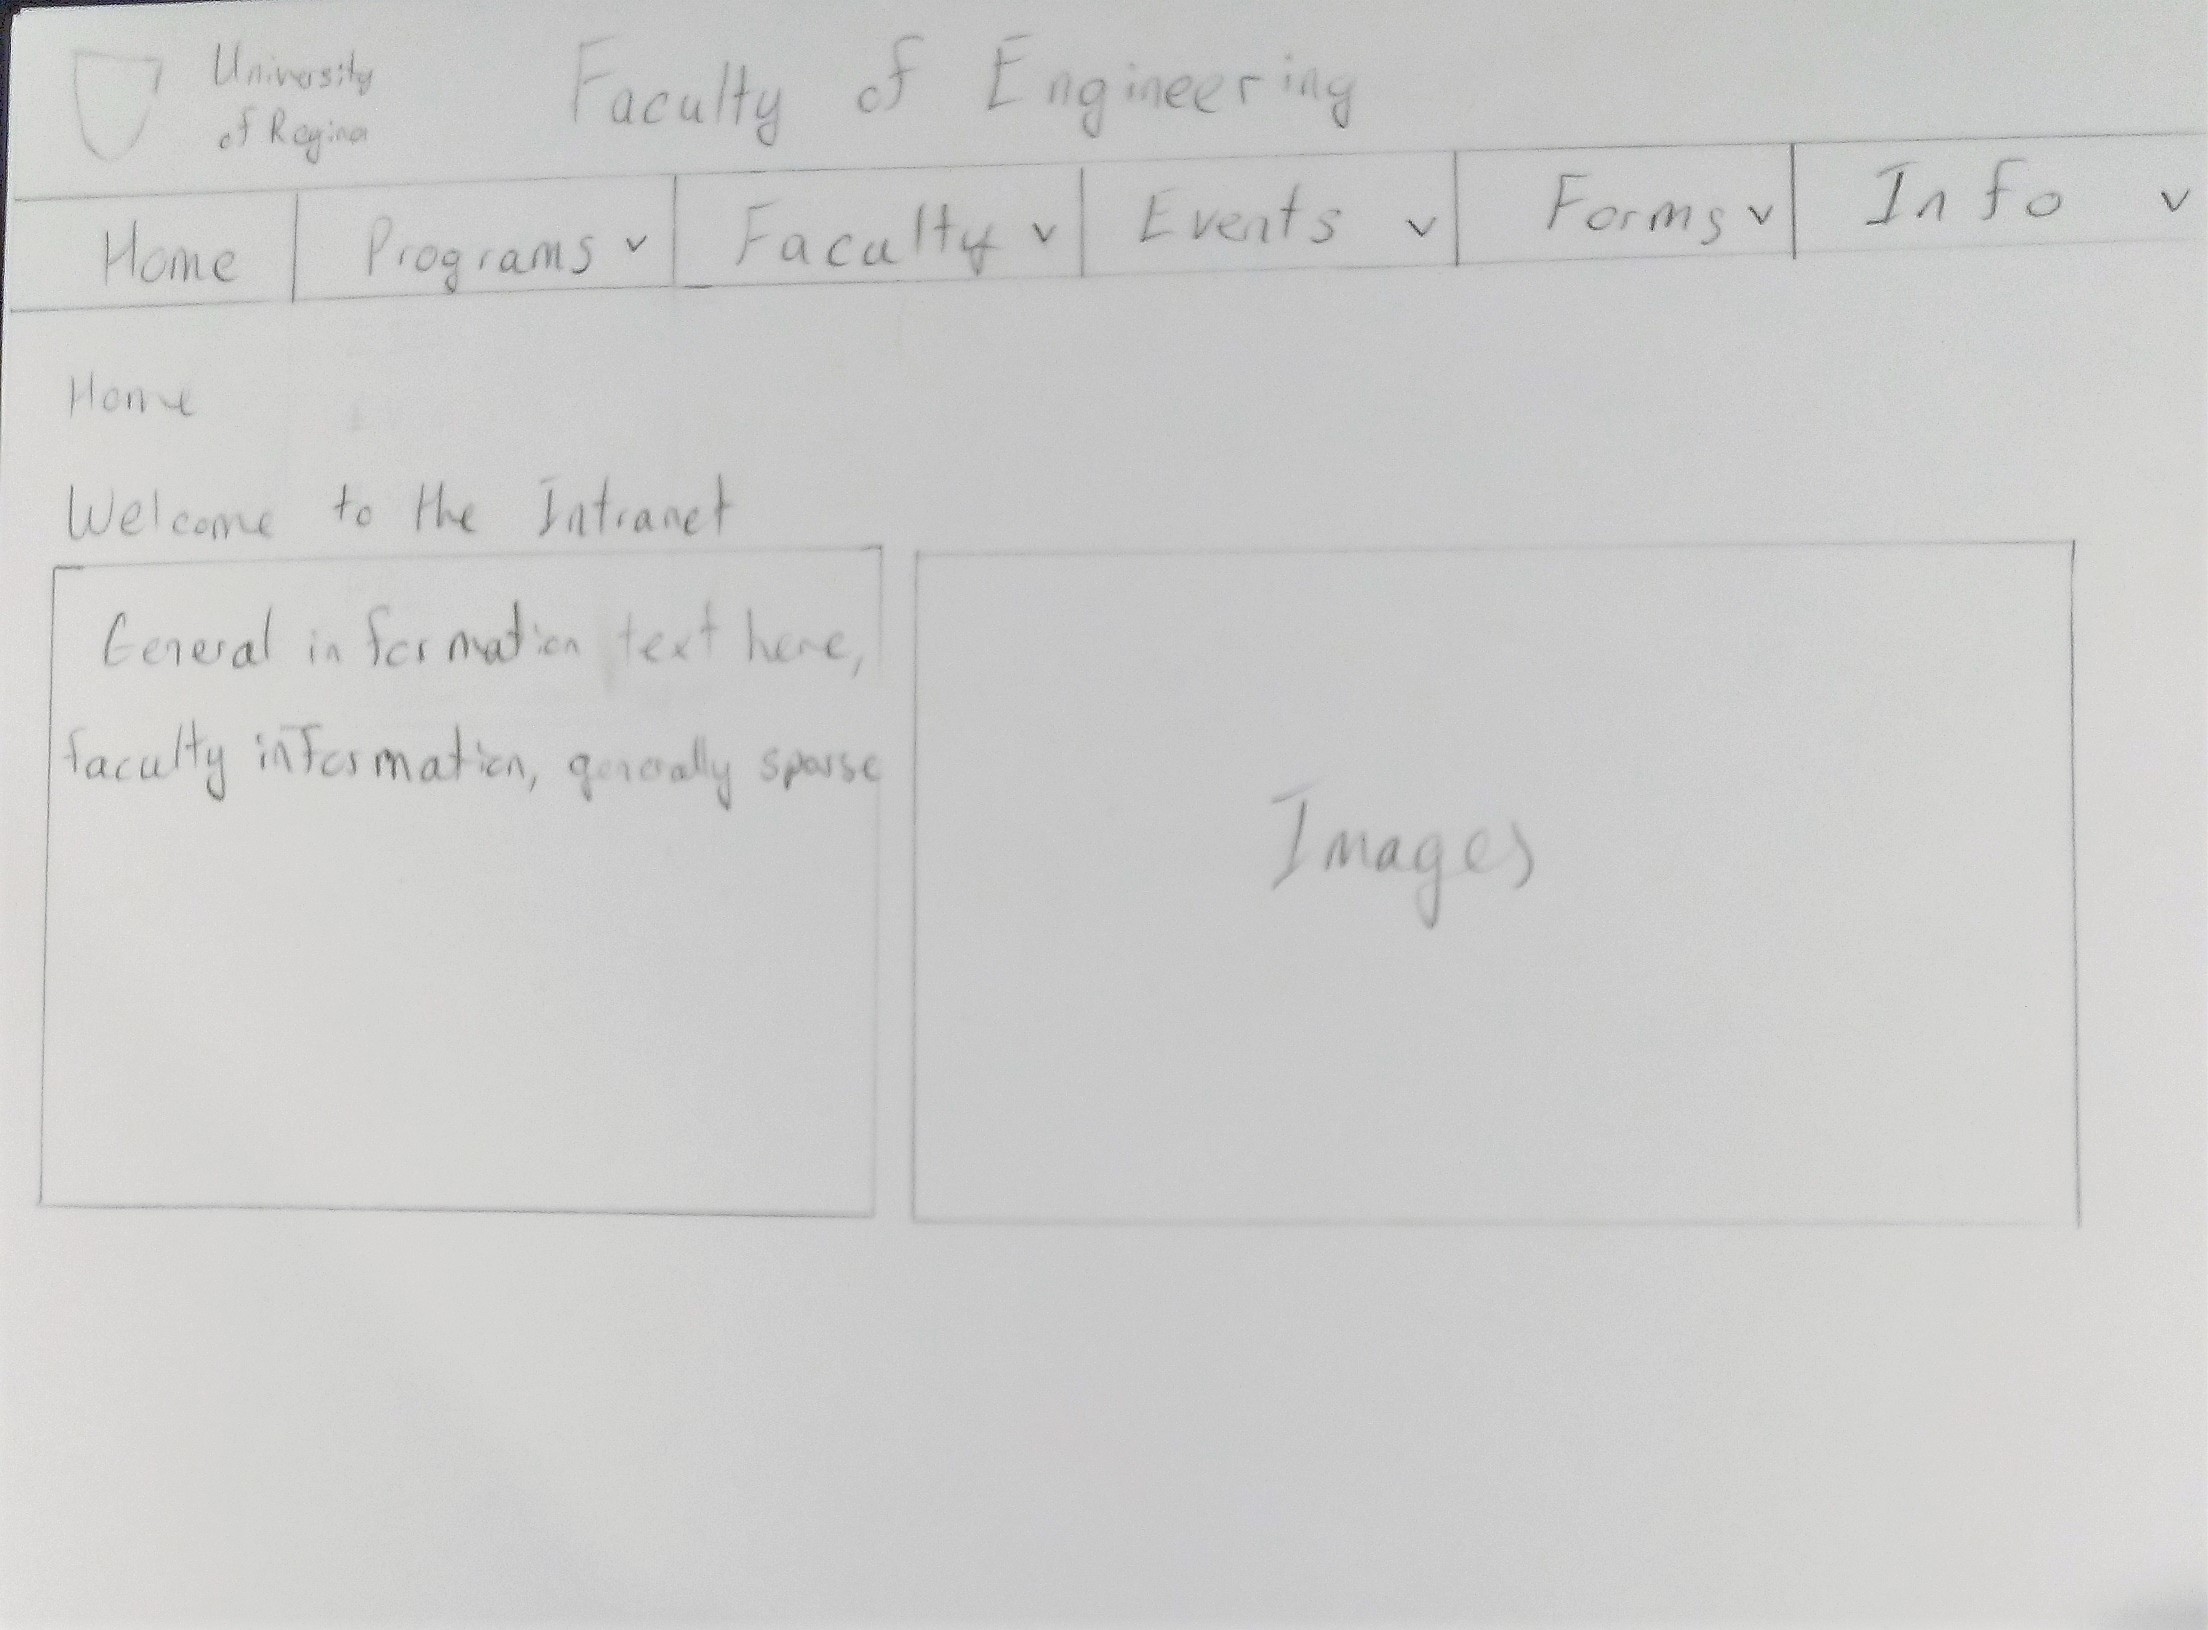 University
of Regina
Faculty of Engineering
Home
Programs v
Faculty v
Events v
Forms v
Info v
Home
Welcome to the Intranet
General information text here,
faculty information, generally sparse
Images